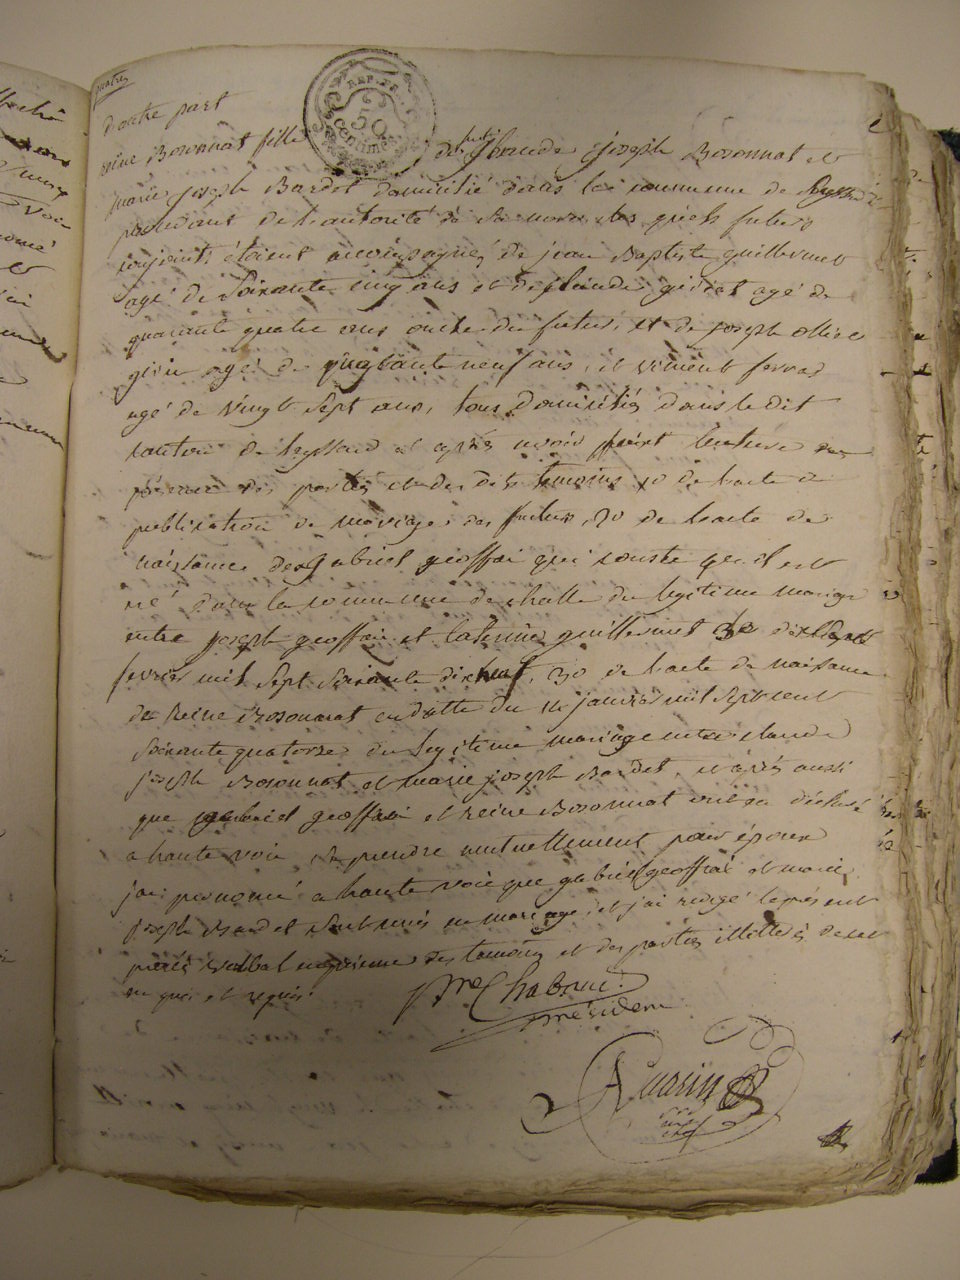 d'autre part
REP. FR.
50
Centimes
reine Bosonnat fille de feu Claude Joseph Bosonnat et
marie joseph Bardet domicilié dans la commune de
procedant de l'autorité de sa mere les quels futurs
conjoints étaient accompagnés de jean Baptiste guillermet
agé de soixante cinq ans et de claude agé de
quarante quatre ans oncle du futur, et de joseph ollier
agé de neuf ans, et vincent ferrad
agé de vingt sept ans, tous domiciliés dans le dit
canton de et après avoir fait lecture en
présence des parties et des dits temoins 1o de l'acte de
publication de mariage des futurs, 2o de l'acte de
naissance de gabriel geoffrai qui conste qu'il est
né dans la commune de challe du legitime mariage
entre joseph geoffrai et guillermet le dix sept
fevrier mil sept soixante dix neuf, 3o de l'acte de naissance
de Reine Bosonnat en datte du janvier mil sept cent
soixante quatorze du legitime mariage entre claude
joseph Bosonnat et marie joseph Bardet, et après aussi
que gabriel geoffrai et reine Bosonnat ont eu déclaré
a haute voix se prendre mutuellement pour époux
j'ai prononcé a haute voix que gabriel geoffrai et marie
joseph Bardet sont unis en mariage, et j'ai redigé le présent
procès verbal en présence des temoins et des parties illettrés de ce
enquis et requis.
président